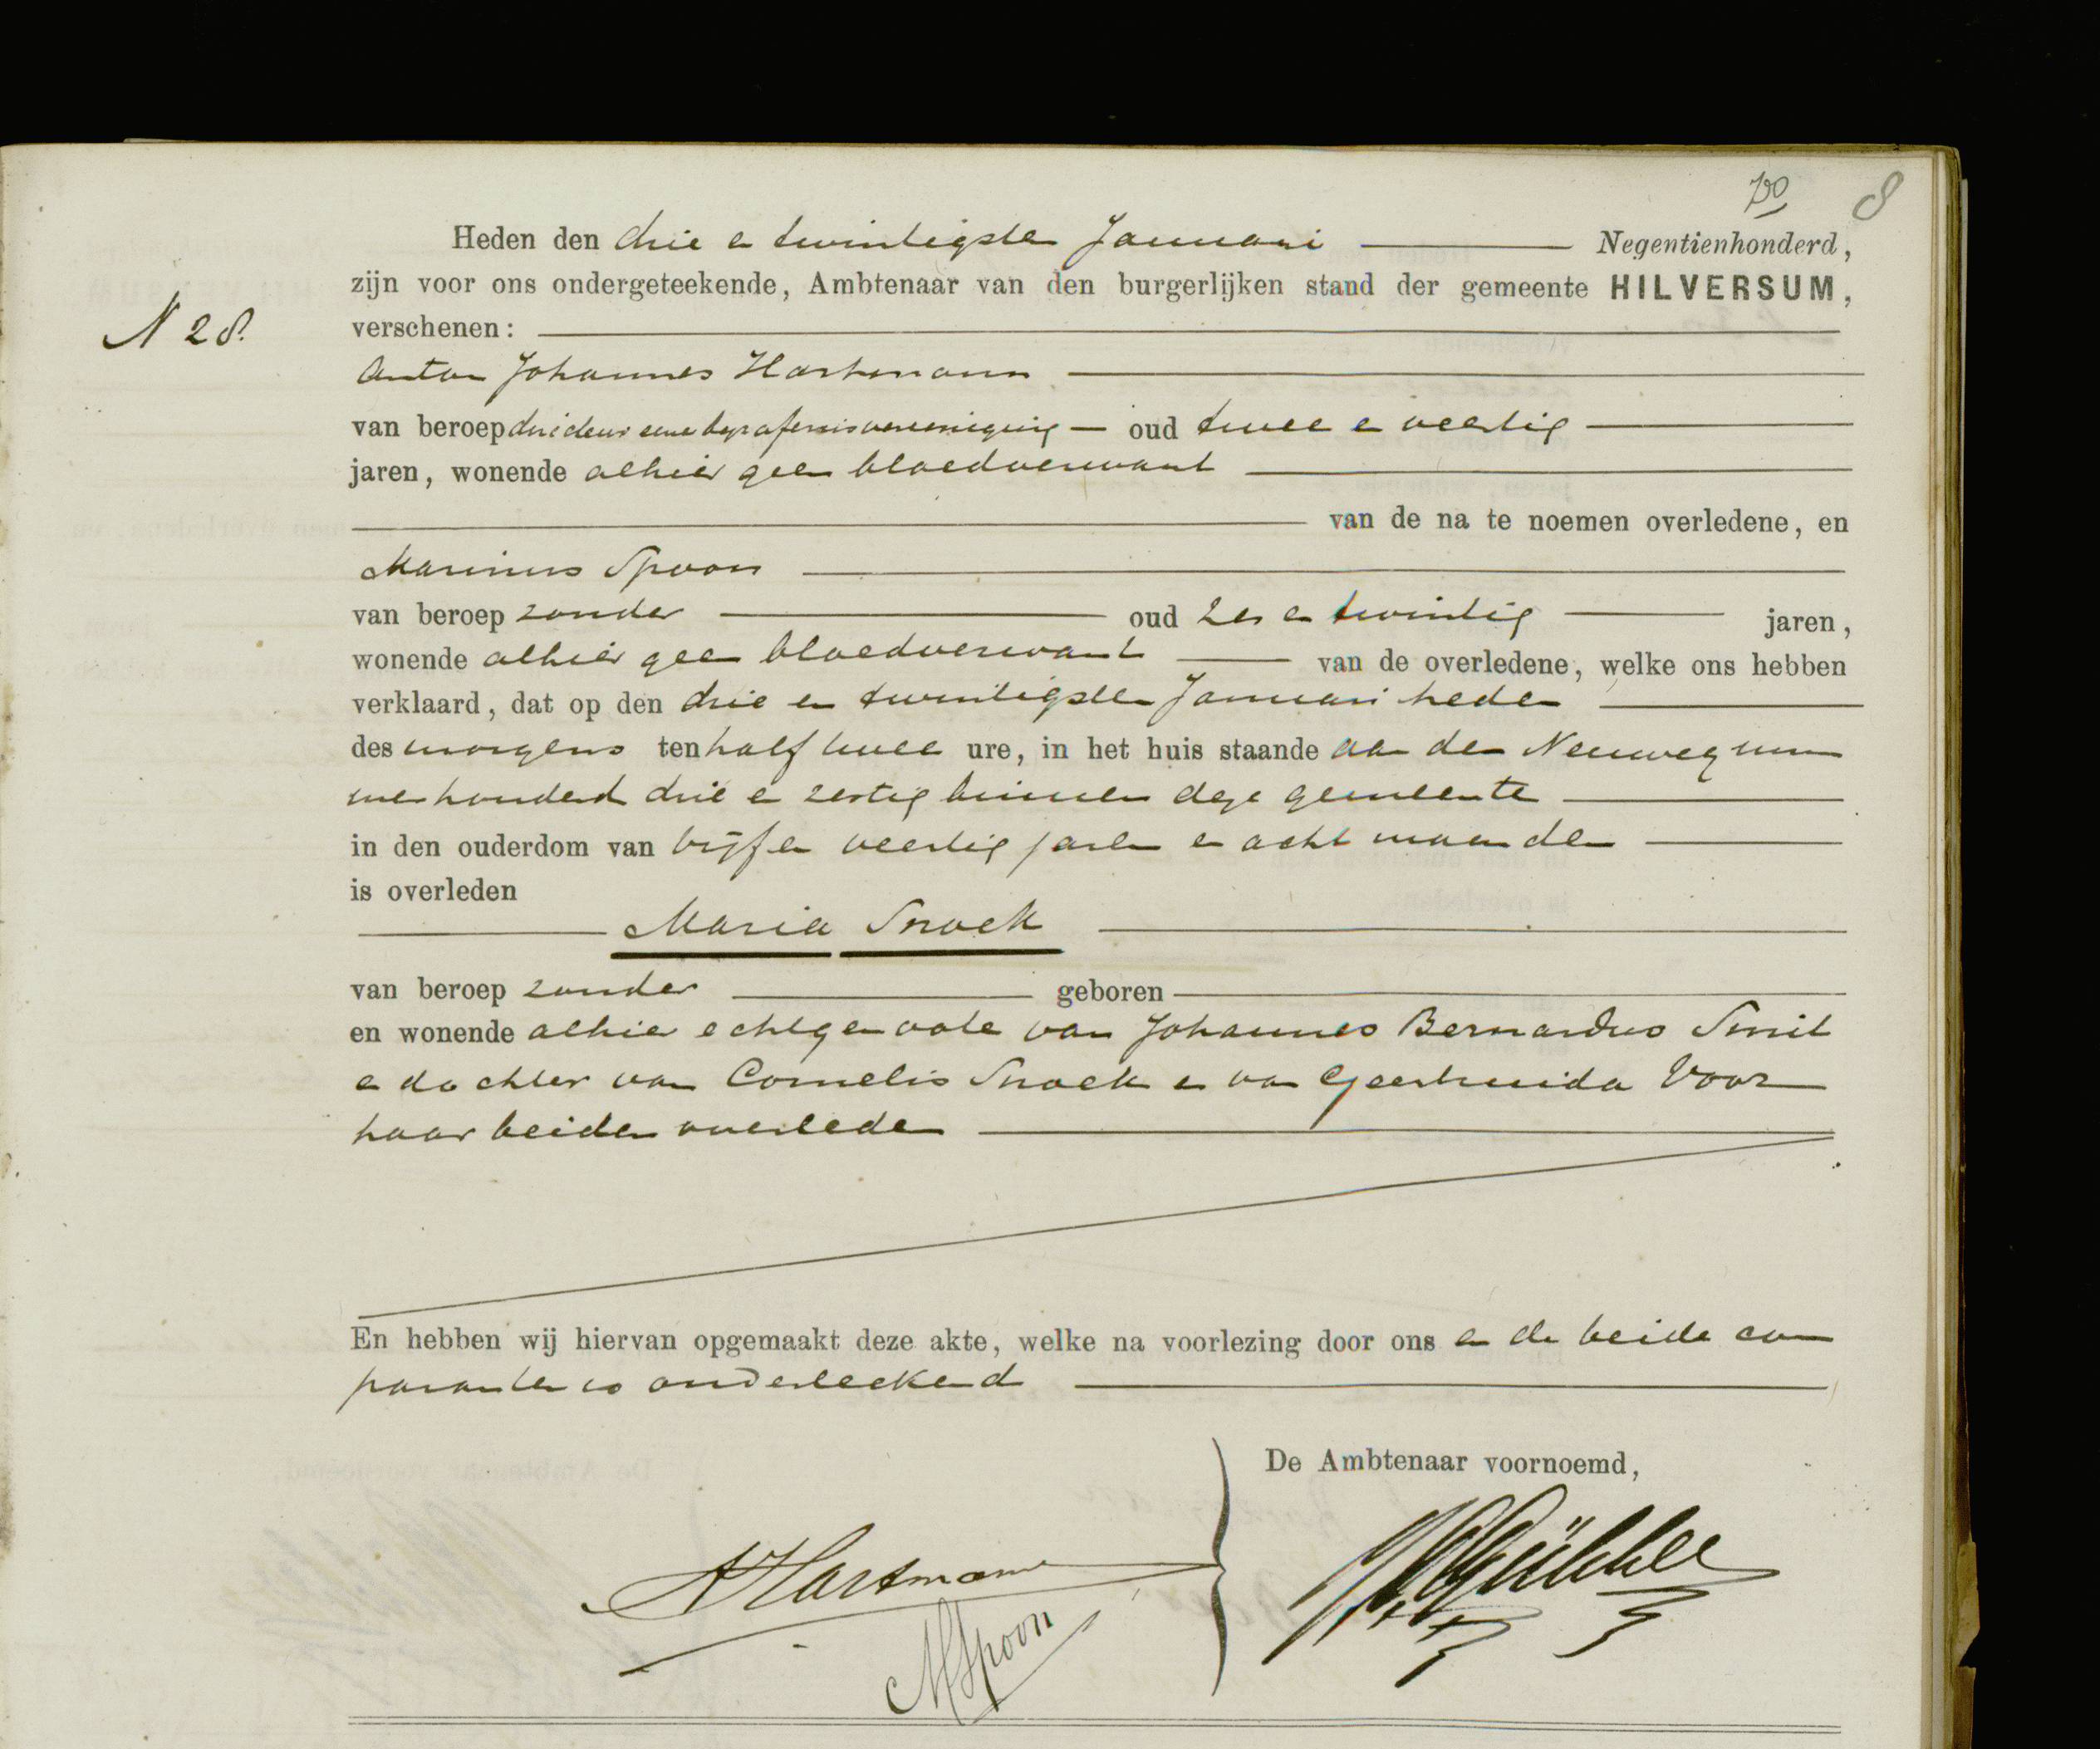 8
Heden den drie en twintigsten Januari Negentienhonderd,
zijn voor ons ondergeteekende, Ambtenaar van den burgerlijken stand der gemeente HILVERSUM,
N 28.
verschenen:
Anton Johannes Hartmann
van beroep directeur eener begrafenisvereeniging oud twee en veertig
jaren, wonende alhier geen bloedverwant
van de na te noemen overledene, en
Marinus Spoon
van beroep zonder oud zes en twintig jaren,
wonende alhier geen bloedverwant van de overledene, welke ons hebben
verklaard, dat op den drie en twintigsten Januari heden
des morgens ten half twee ure, in het huis staande aan den Neuweg num
mer honderd drie en zestig binnen deze gemeente
in den ouderdom van vijf en veertig jaren en acht maanden
is overleden
Maria Snoek
van beroep zonder geboren
en wonende alhier echtgenoote van Johannes Bernardus Smit
en dochter van Cornelis Snoek en van Geertruida Voor
haar beiden overleden
En hebben wij hiervan opgemaakt deze akte, welke na voorlezing door ons en de beide com
paranten is onderteekend
De Ambtenaar voornoemd,
AHartmann
MSpoon